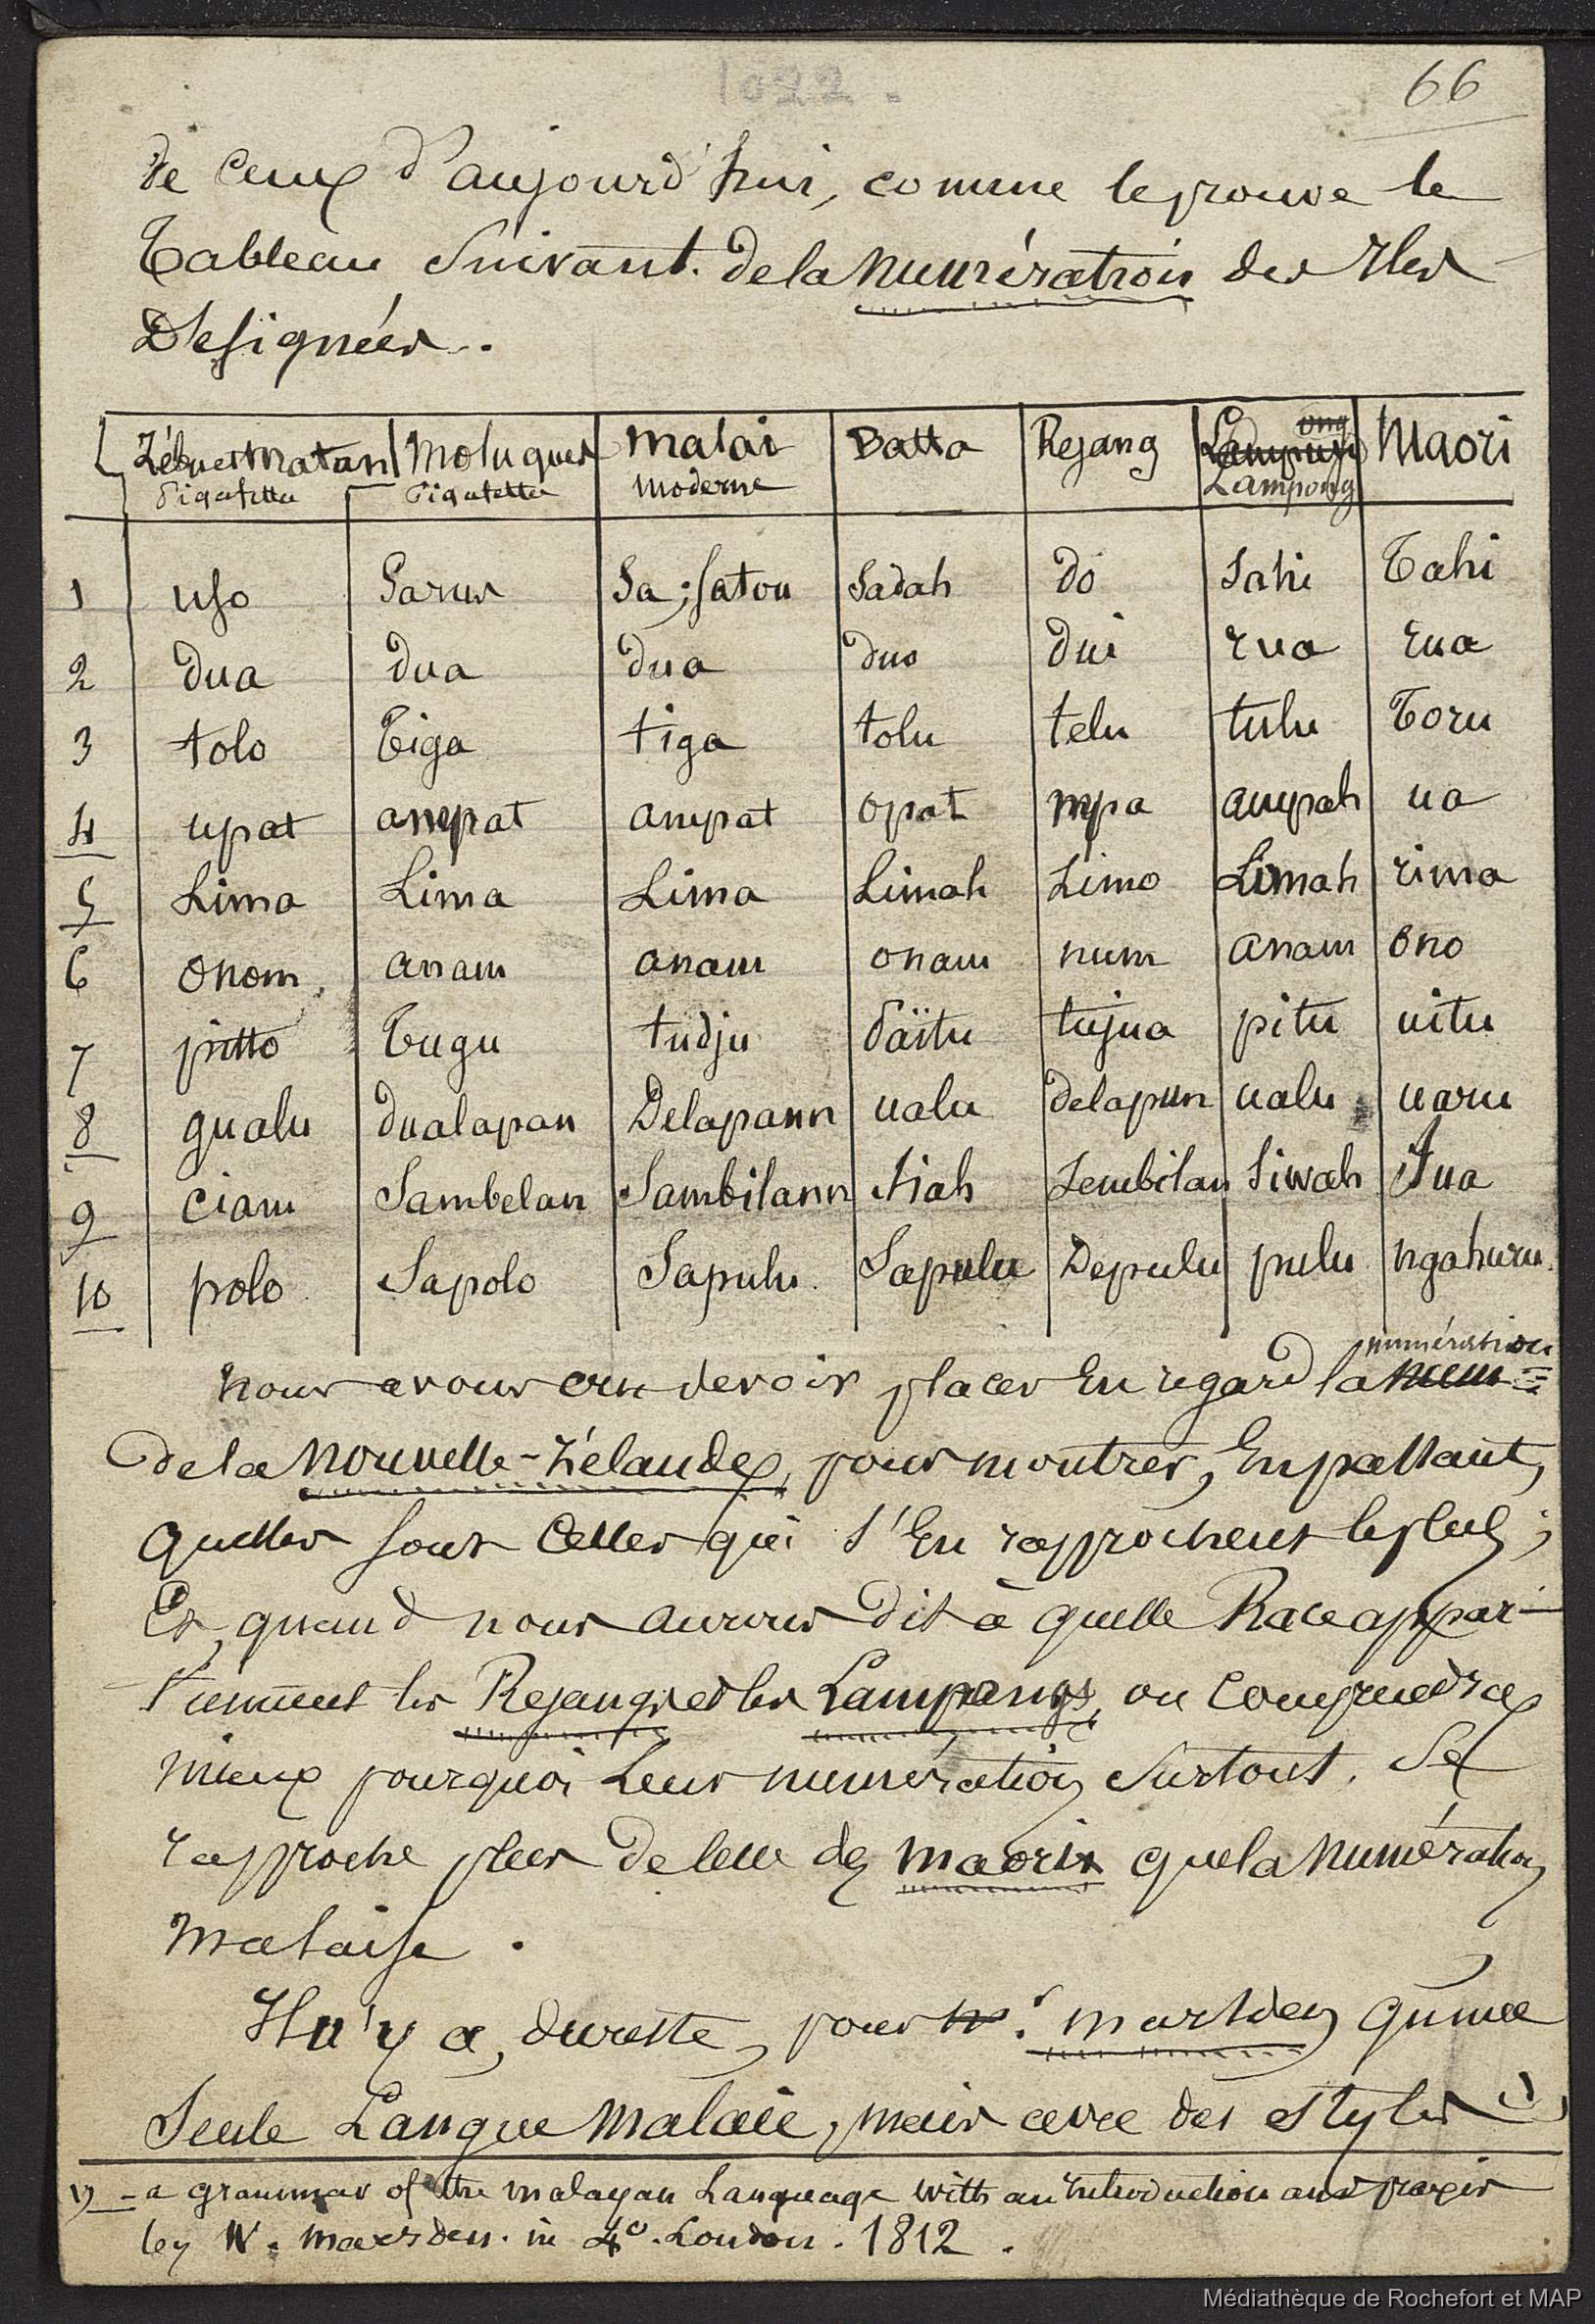 1022.
66
de ceux d'aujourd'hui, comme le prouve le
Tableau Suivant. de la numération des Iles
Designées.
Zébu et Matan | Moluques | Malai | Batta | Rejang | Lampung ong | Maori
Pigafetta | Pigafetta | Moderne | Lampong
1 | uso | Sarus | Sa ; satou | Sadah | do | Sahi | Tahi
2 | dua | dua | dua | duo | dui | rua | rua
3 | tolo | Tiga | tiga | tolu | telu | tulu | Toru
4 | upat | ampat | ampat | opat | mpa | ampah | ua
5 | Lima | Lima | Lima | Limah | Limo | Limah | rima
6 | onom | anam | anam | onam | num | anam | ono
7 | pitto | Tugu | tudju | païtu | tujua | pitu | uitu
8 | gualu | dualapan | Delapann | ualu | delapun | ualu | uaru
9 | ciam | Sambelan | Sambilann | Siah | Sembilan | Siwah | Iua
10 | polo | Sapolo | Sapulu | Sapulu | Depulu | pulu | ngahuru.
numération
nous avons cru devoir placer En regard la num=
de la Nouvelle-Zélande, pour montrer, En passant,
quelles sont Celles qui s'En rapprochent le plus ;
Et, quand nous aurons dit à quelle Race appar-
tiennent les Rejangs et les Lampongs, on comprendra
mieux pourquoi Leur numération surtout, Se
rapproche plus de celle des maoris que la Numération
malaise.
Il n'y a, du reste, pour Mr. Marsden, qu'une
Seule Langue Malaie, mais avec des Styles (1)
1) - a grammar of the malayan Language with an introduction and praxis
by W. Marsden. in 4°. London. 1812.
Médiathèque de Rochefort et MAP